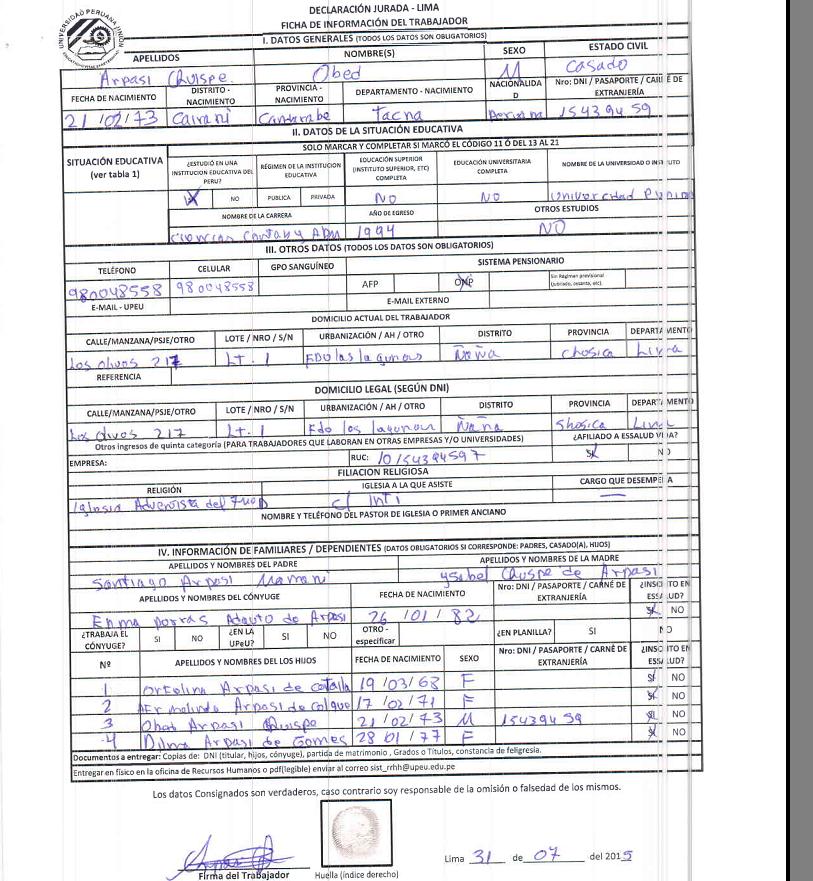 UNIVERSIDAD PERUANA UNION
DECLARACIÓN JURADA - LIMA
FICHA DE INFORMACIÓN DEL TRABAJADOR
I. DATOS GENERALES (TODOS LOS DATOS SON OBLIGATORIOS)
APELLIDOS NOMBRE(S) SEXO ESTADO CIVIL
Arpasi Quispe. Obed M Casado
FECHA DE NACIMIENTO DISTRITO - NACIMIENTO PROVINCIA - NACIMIENTO DEPARTAMENTO - NACIMIENTO NACIONALIDAD Nro: DNI / PASAPORTE / CARNÉ DE EXTRANJERÍA
21/02/73 Cairani Candarabe Tacna Peruana 15439459
II. DATOS DE LA SITUACIÓN EDUCATIVA
SOLO MARCAR Y COMPLETAR SI MARCÓ EL CÓDIGO 11 Ó DEL 13 AL 21
SITUACIÓN EDUCATIVA (ver tabla 1) ¿ESTUDIÓ EN UNA INSTITUCION EDUCATIVA DEL PERU? RÉGIMEN DE LA INSTITUCION EDUCATIVA EDUCACIÓN SUPERIOR (INSTITUTO SUPERIOR, ETC) COMPLETA EDUCACIÓN UNIVERSITARIA COMPLETA NOMBRE DE LA UNIVERSIDAD O INSTITUTO
NO PUBLICA PRIVADA NO NO Universidad
NOMBRE DE LA CARRERA AÑO DE EGRESO OTROS ESTUDIOS
Ciencias Contay Adm 1994 NO
III. OTROS DATOS (TODOS LOS DATOS SON OBLIGATORIOS)
TELÉFONO CELULAR GPO SANGUÍNEO SISTEMA PENSIONARIO
980048558 980048558 AFP ONP Sin Régimen previsional (jubilado, cesante, etc).
E-MAIL - UPEU E-MAIL EXTERNO
DOMICILIO ACTUAL DEL TRABAJADOR
CALLE/MANZANA/PSJE/OTRO LOTE / NRO / S/N URBANIZACIÓN / AH / OTRO DISTRITO PROVINCIA DEPARTAMENTO
Los olivos 217 Lt. 1 FDO las lagunas Ñaña Chosica Lima
REFERENCIA
DOMICILIO LEGAL (SEGÚN DNI)
CALLE/MANZANA/PSJE/OTRO LOTE / NRO / S/N URBANIZACIÓN / AH / OTRO DISTRITO PROVINCIA DEPARTAMENTO
Los olivos 217 Lt. 1 Fdo las lagunas Ñaña Shosica Lima
Otros ingresos de quinta categoría (PARA TRABAJADORES QUE LABORAN EN OTRAS EMPRESAS Y/O UNIVERSIDADES) ¿AFILIADO A ESSALUD VIDA?
EMPRESA: RUC: 10154394597 SI NO
FILIACION RELIGIOSA
RELIGIÓN IGLESIA A LA QUE ASISTE CARGO QUE DESEMPEÑA
Iglesia Adventista del c/ Inti —
NOMBRE Y TELÉFONO DEL PASTOR DE IGLESIA O PRIMER ANCIANO
IV. INFORMACIÓN DE FAMILIARES / DEPENDIENTES (DATOS OBLIGATORIOS SI CORRESPONDE: PADRES, CASADO(A), HIJOS)
APELLIDOS Y NOMBRES DEL PADRE APELLIDOS Y NOMBRES DE LA MADRE
Santiago Arpasi Mamani Ysabel Quispe de Arpasi
APELLIDOS Y NOMBRES DEL CÓNYUGE FECHA DE NACIMIENTO Nro: DNI / PASAPORTE / CARNÉ DE EXTRANJERÍA ¿INSCRITO EN ESSALUD?
Enma Porras Adauto de Arpasi 26/01/82 SI NO
¿TRABAJA EL CÓNYUGE? SI NO ¿EN LA UPeU? SI NO OTRO - especificar ¿EN PLANILLA? SI NO
Nº APELLIDOS Y NOMBRES DEL LOS HIJOS FECHA DE NACIMIENTO SEXO Nro: DNI / PASAPORTE / CARNÉ DE EXTRANJERÍA ¿INSCRITO EN ESSALUD?
1 Ortelina Arpasi de 19/03/68 F SI NO
2 Arpasi de Colque 17/02/71 F SI NO
3 Obed Arpasi Quispe 21/02/73 M 15439459 SI NO
4 Dilma Arpasi de Gomes 28 01/77 F SI NO
Documentos a entregar: Copias de: DNI (titular, hijos, cónyuge), partida de matrimonio , Grados o Títulos, constancia de feligresia.
Entregar en físico en la oficina de Recursos Humanos o pdf(legible) enviar al correo sist_rrhh@upeu.edu.pe
Los datos Consignados son verdaderos, caso contrario soy responsable de la omisión o falsedad de los mismos.
Firma del Trabajador Huella (índice derecho) Lima 31 de 07 del 2015